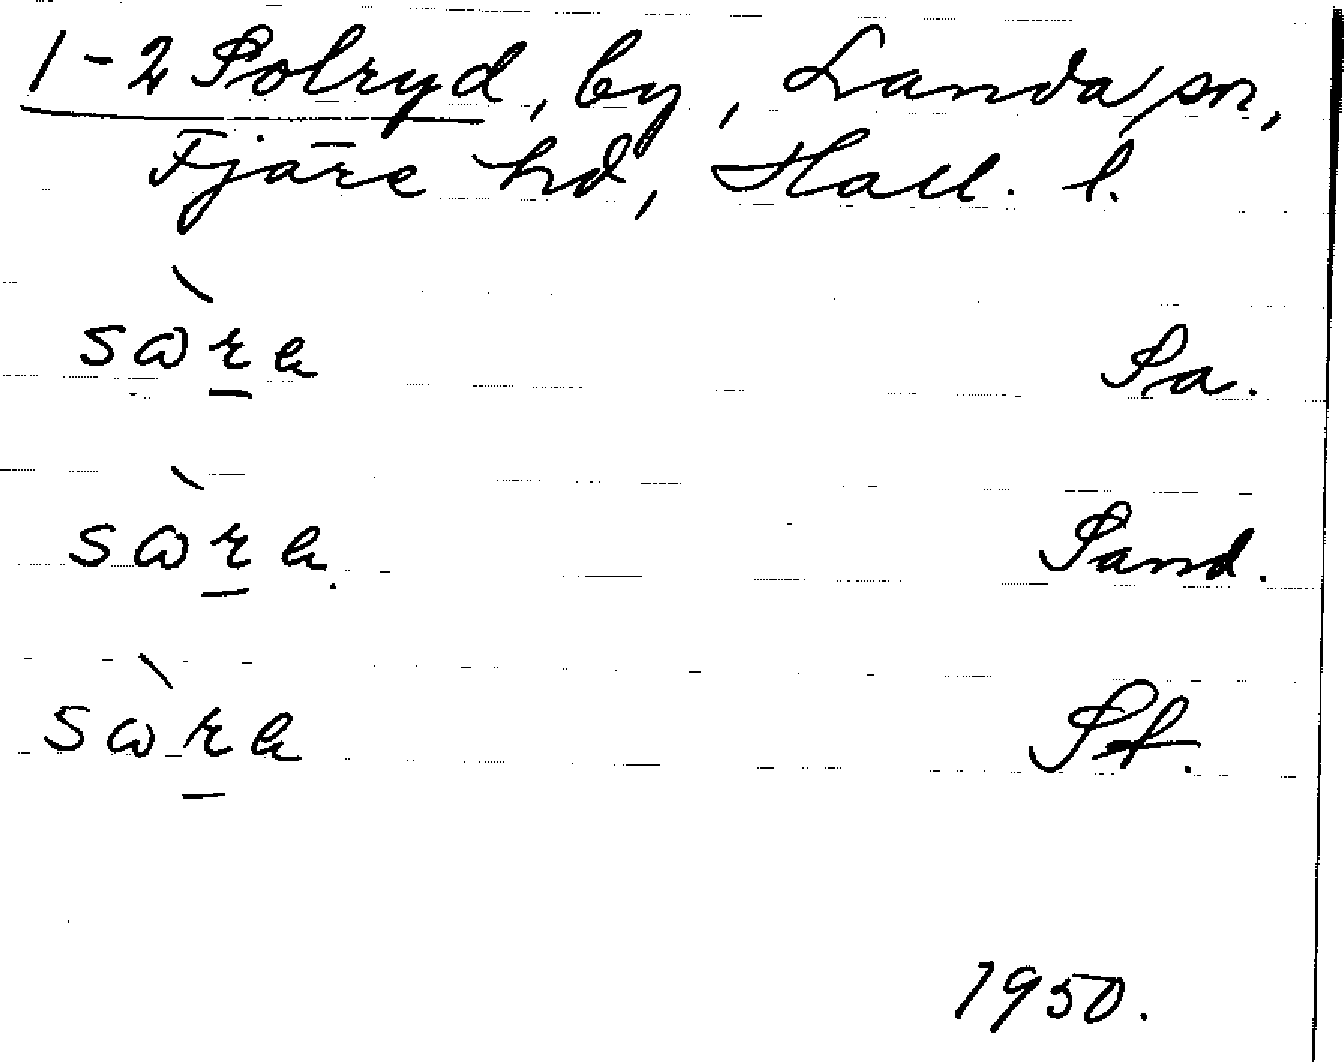 1-2 Solryd, by, Landa sn,
Fjäre hd, Hall. l.
sɷ̀ra
Sa.
sɷ̀ra
Sand.
sɷ̀ra
St.
1950.